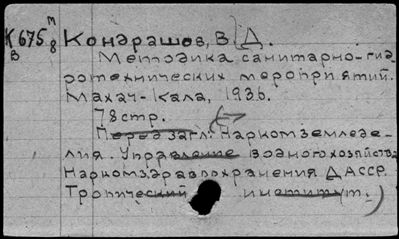 К675 т/8 Кондрашов, В. Д.
В
Методика санитарно-гид
ротехнических мероприятий.
Махач-Кала, 1936.
78 стр.
Перед загл.: Наркомземледе-
лия. Управление водного хозяйства
Наркомздравоохранения ДАССР
Тропический институт.)